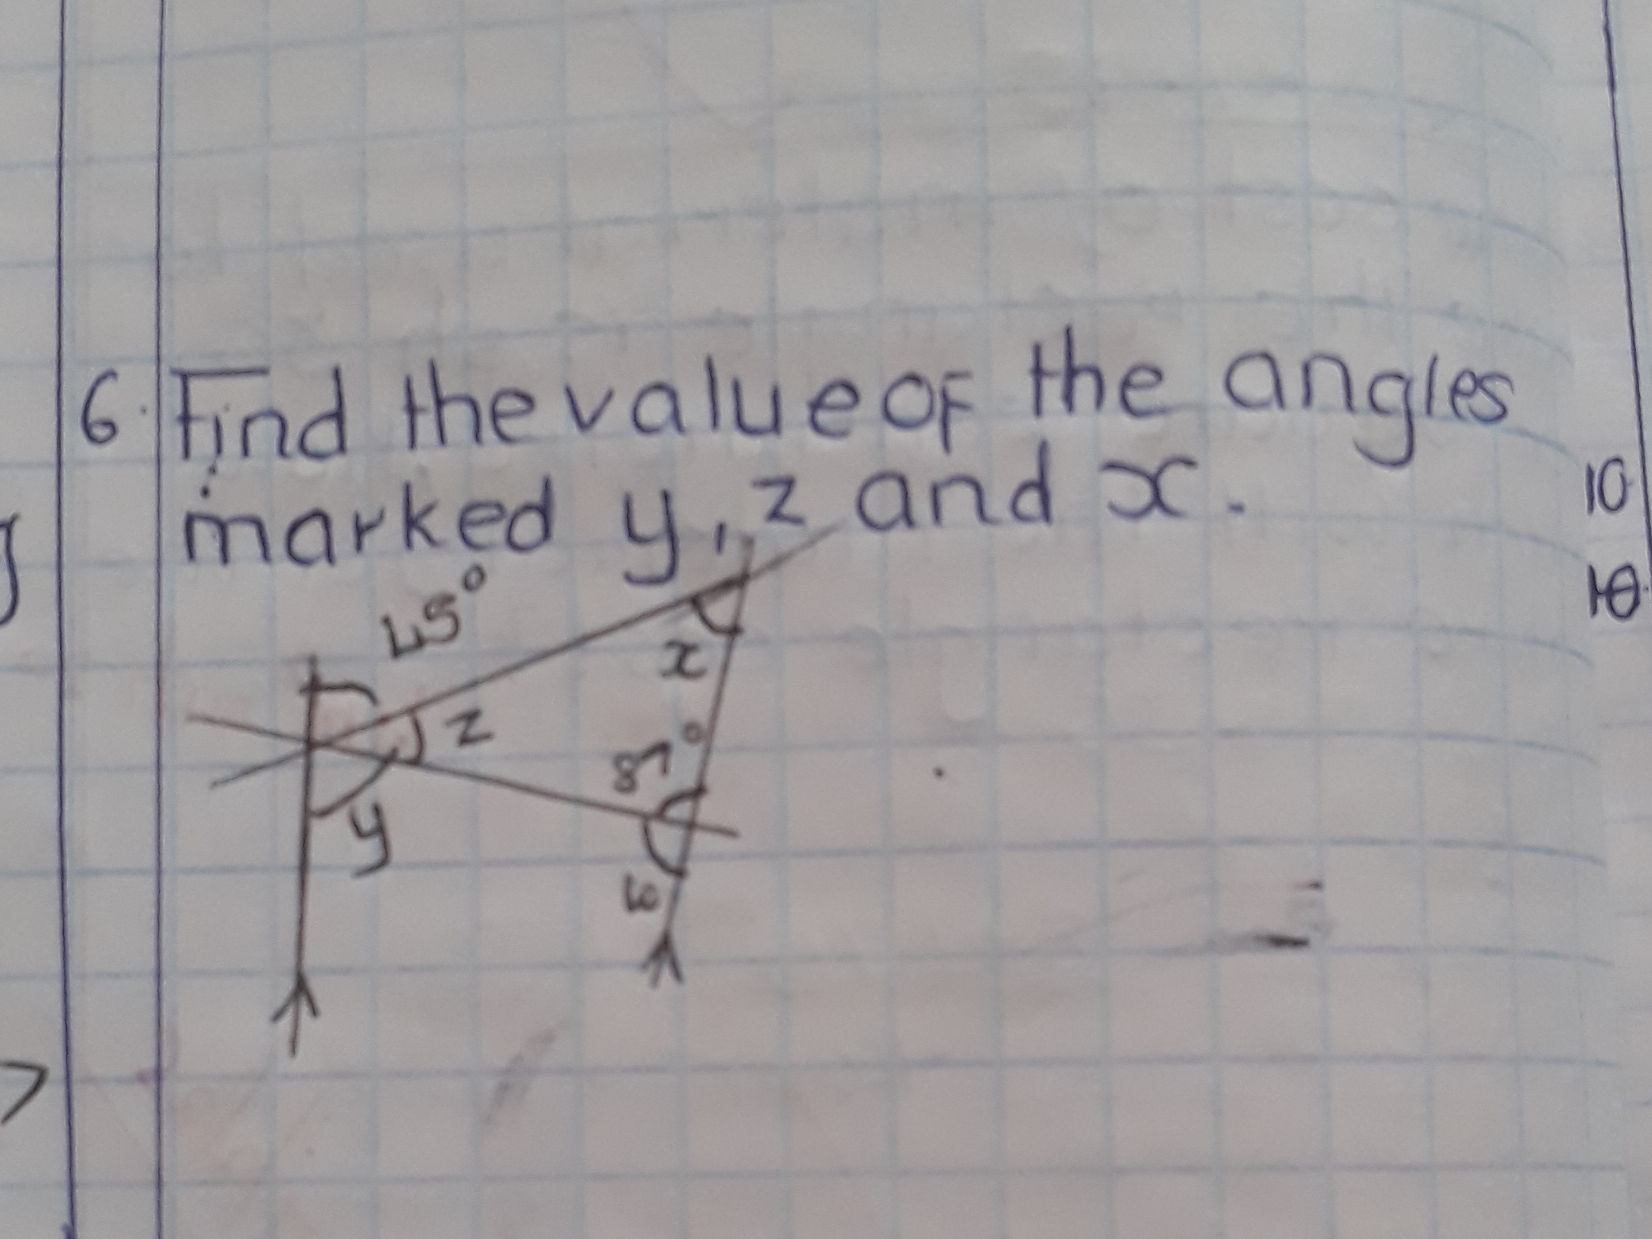 6. Find the value of the angles
marked y, z and x.
45°
x
z
87°
y
w
10
10